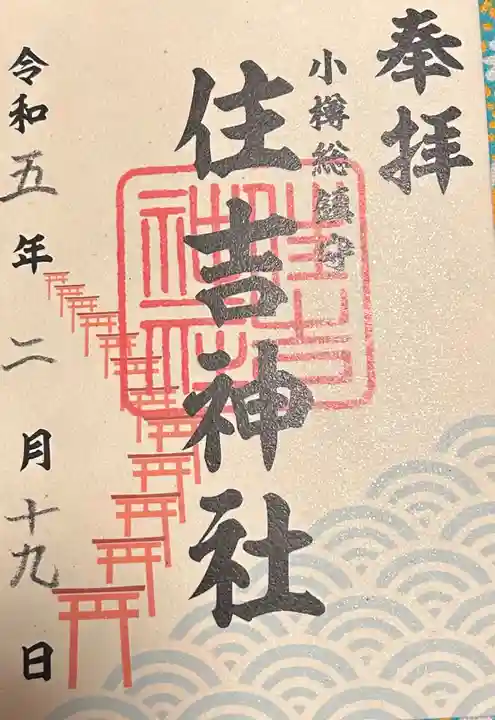 奉拝
小樽総鎮守
住吉神社
令和五年二月十九日